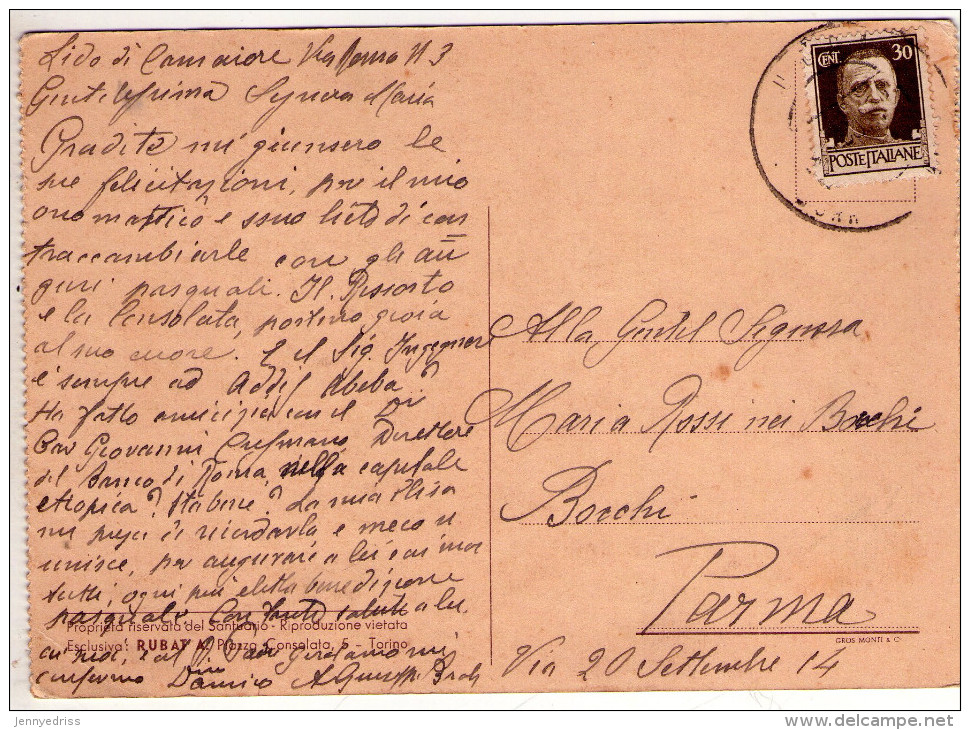 Lido di Camaiore Via Roma N 3
Gentilissima Signora Maria
Gradite mi giunsero le
sue felicitazioni, per il mio
onomastico e sono lieto di con
traccambiarle con gli au
guri pasquali. Il Risorto
e la Consolata, portino gioia
al suo cuore. E il Sig. Ingegnere
è sempre ad Addis Abeba?
Ha fatto amicizia con il
Cav Giovanni Direttore
del Banco di Roma nella capitale
etiopica? Sta bene? La mia Elisa
mi prega di ricordarla e meco si
unisce, per augurare a lei e ai suoi
tutti, ogni più eletta benedizione
pasquale. Con tanti saluti a lei
Proprietà riservata del Santuario - Riproduzione vietata
Esclusiva: RUBAT A. Piazza Consolata, 5 - Torino
ai suoi, e al mi
confermo
CENT. 30
POSTE ITALIANE
Alla Gentil Signora
Maria Rossi nei Bocchi
Bocchi
Parma
GROS MONTI & C.
Via 20 Settembre 14
jennyedriss
delcampe.net